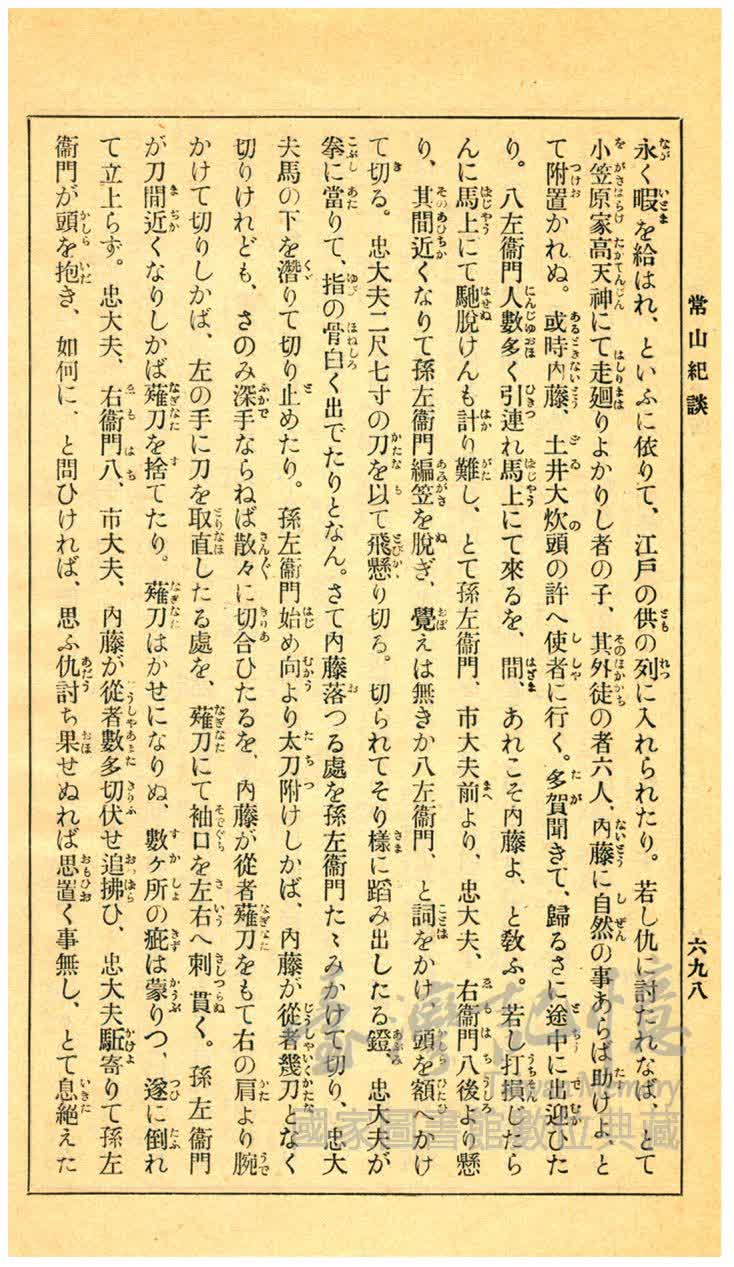 常山紀談
六九八
永く暇を給はれ、といふに依りて、江戸の供の列に入れられたり。若し仇に討たれなば、とて
小笠原家高天神にて走廻りよかりし者の子、其外徒の者六人、内藤に自然の事あらば助けよ、と
て附置かれぬ。或時内藤、土井大炊頭の許へ使者に行く。多賀聞きて、歸るさに途中に出迎ひた
り。八左衞門人數多く引連れ馬上にて來るを、間、あれこそ内藤よ、と敎ふ。若し打損じたら
んに馬上にて馳脱けんも計り難し、とて孫左衞門、市大夫前より、忠大夫、右衞門八後より懸
り、其間近くなりて孫左衞門編笠を脱ぎ、覺えは無きか八左衞門、と詞をかけ、頭を額へかけ
て切る。忠大夫二尺七寸の刀を以て飛懸り切る。切られてそり樣に蹈み出したる鐙、忠大夫が
拳に當りて、指の骨白く出でたりとなん。さて内藤落つる處を孫左衞門たゝみかけて切り、忠大
夫馬の下を潛りて切り止めたり。孫左衞門始め向より太刀附けしかば、内藤が從者幾刀となく
切りけれども、さのみ深手ならねば散々に切合ひたるを、内藤が從者薙刀をもて右の肩より腕
かけて切りしかば、左の手に刀を取直したる處を、薙刀にて袖口を左右へ刺貫く。孫左衞門
が刀間近くなりしかば薙刀を捨てたり。薙刀はかせになりぬ、數ヶ所の疵は蒙りつ、遂に倒れ
て立上らず。忠大夫、右衞門八、市大夫、内藤が從者數多切伏せ追拂ひ、忠大夫駈寄りて孫左
衞門が頭を抱き、如何に、と問ひければ、思ふ仇討ち果せぬれば思置く事無し、とて息絶えた
臺灣記憶
Taiwan Memory
國家圖書館數位典藏